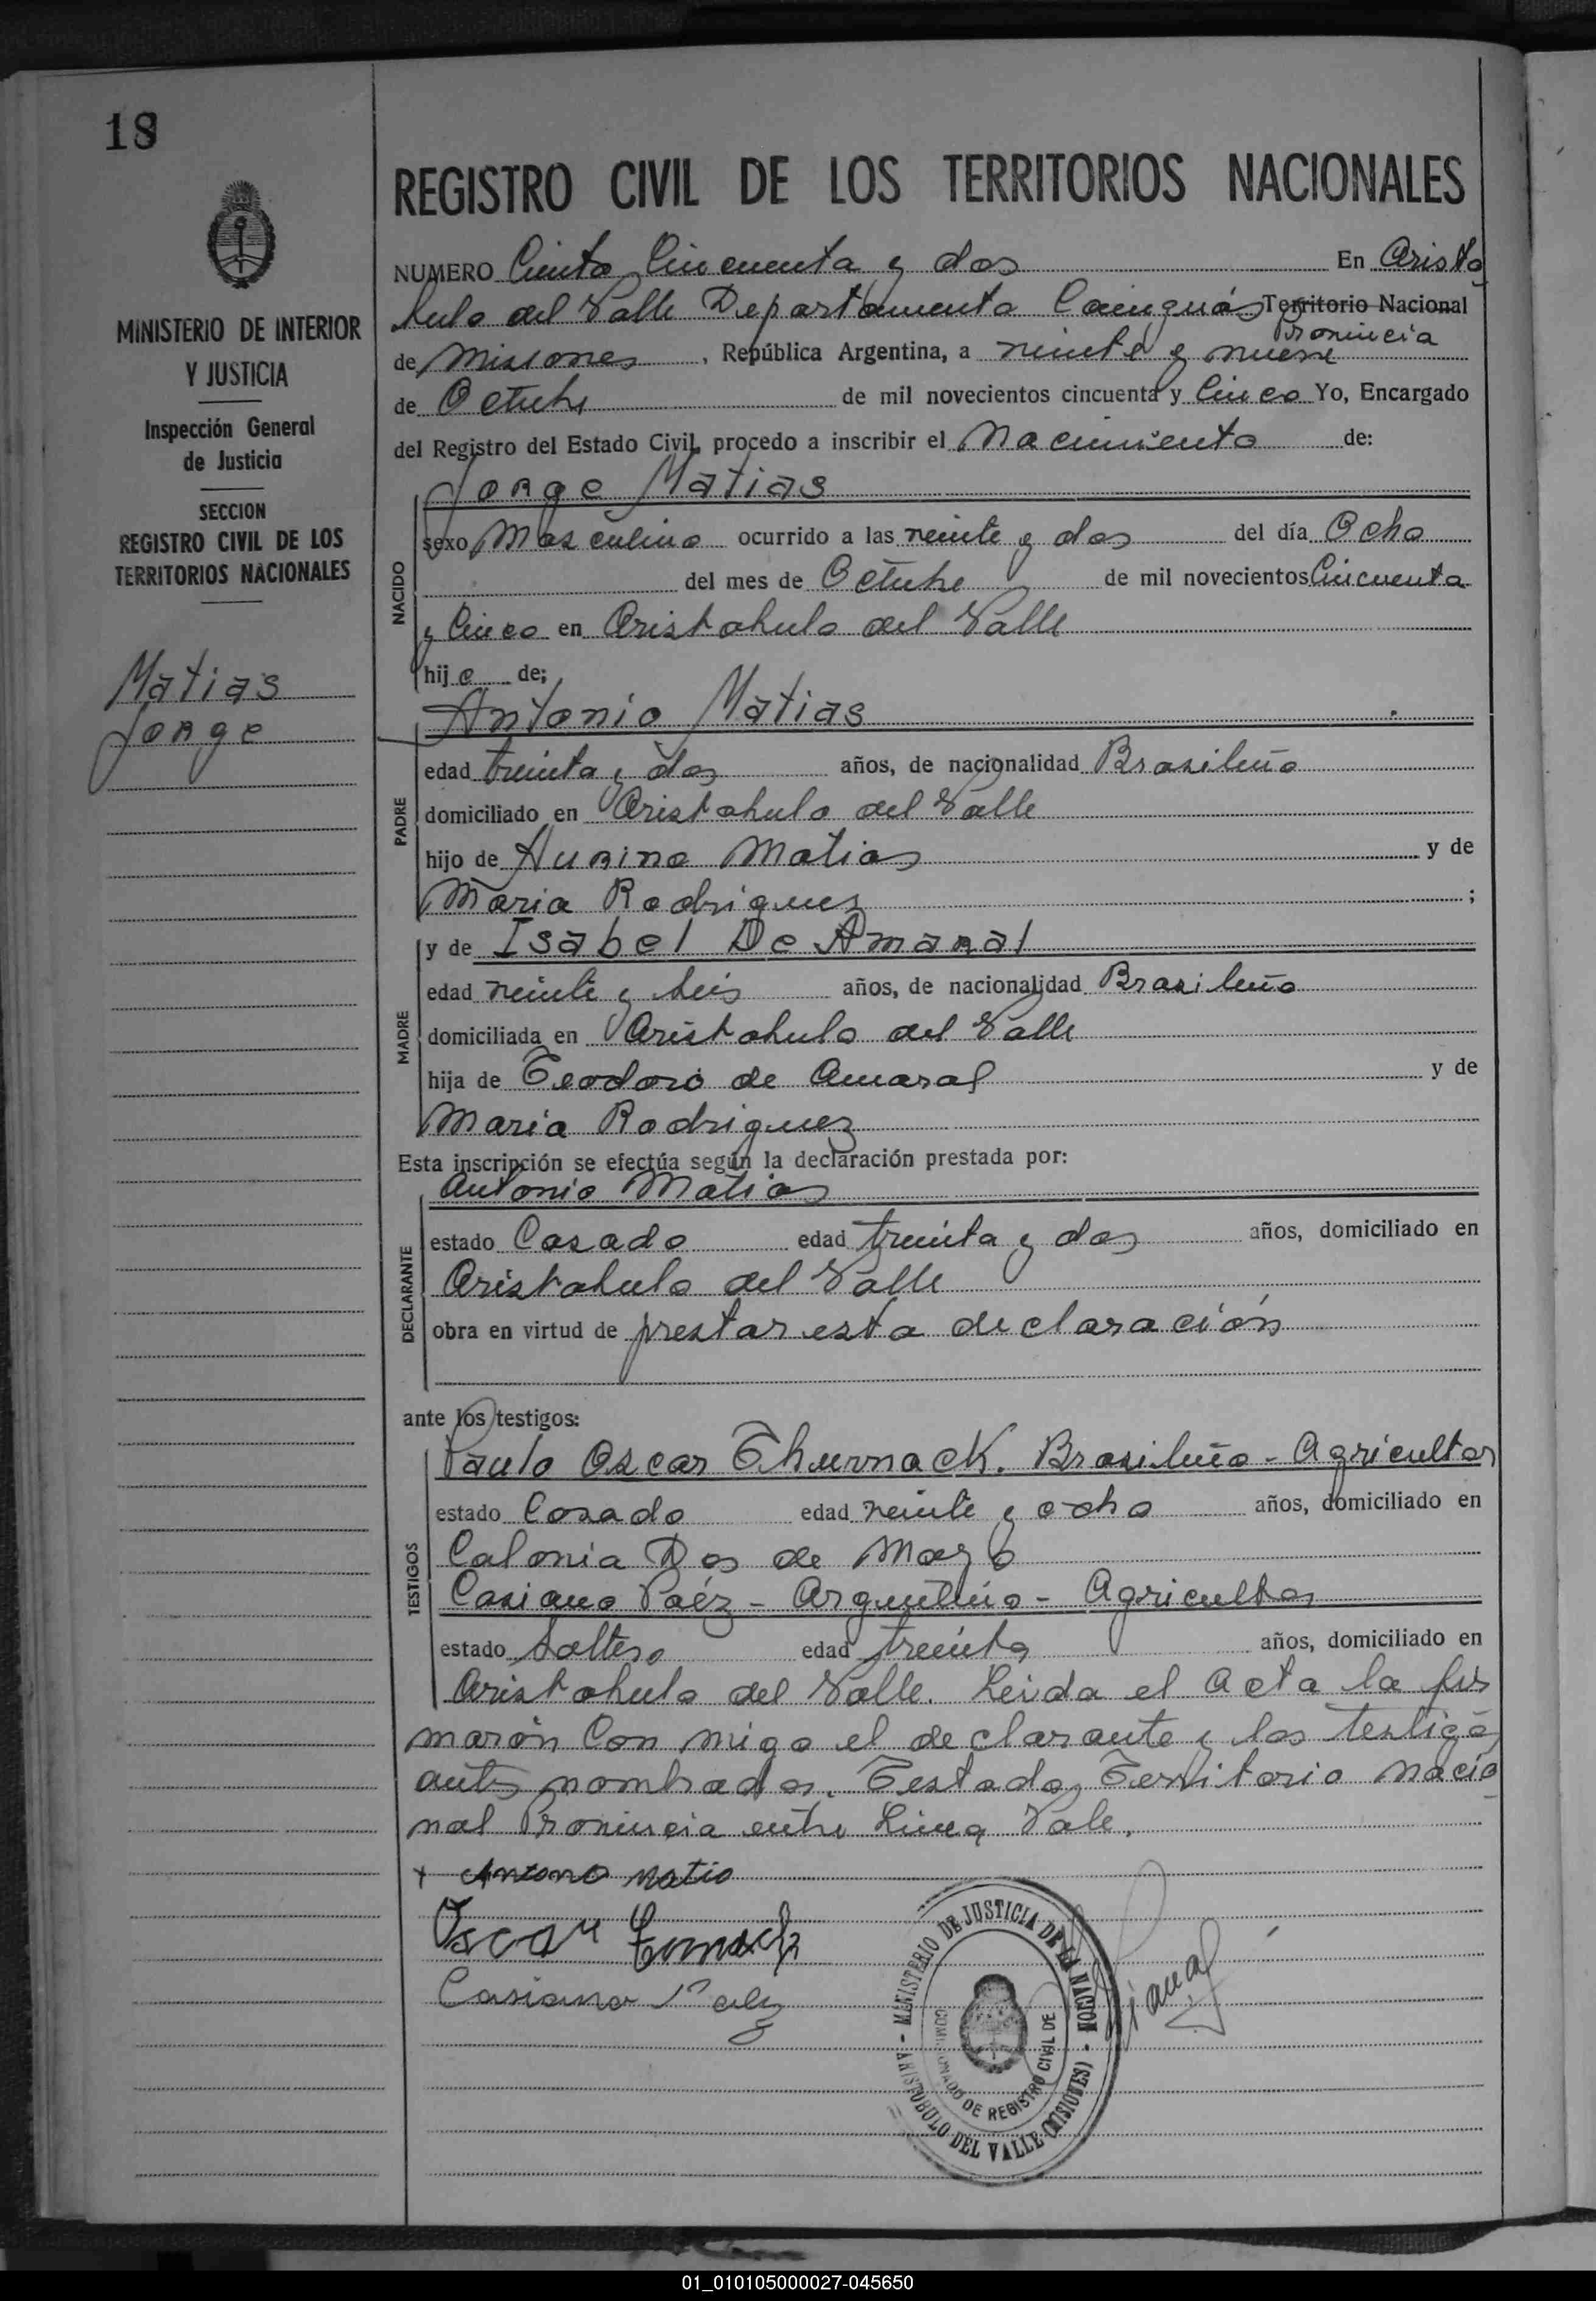 18
MINISTERIO DE INTERIOR
Y JUSTICIA
Inspección General
de Justicia
SECCION
REGISTRO CIVIL DE LOS
TERRITORIOS NACIONALES
Matias
Jorge
REGISTRO CIVIL DE LOS TERRITORIOS NACIONALES
NUMERO Ciento Cincuenta y dos En Aristo
bulo del Valle Departamento Cainguás Territorio Nacional
Provincia
de Misiones, República Argentina, a veinte y nueve
de Octubre de mil novecientos cincuenta y Cinco Yo, Encargado
del Registro del Estado Civil, procedo a inscribir el Nacimiento de:
Jorge Matias
NACIDO
sexo Masculino ocurrido a las veinte y dos del día Ocho
del mes de Octubre de mil novecientos Cincuenta
y Cinco en Aristobulo del Valle
hijo de;
Antonio Matias
PADRE
edad treinta y dos años, de nacionalidad Brasileño
domiciliado en Aristobulo del Valle
hijo de Aurino Matias y de
Maria Rodriguez ;
y de Isabel De Amaral
MADRE
edad veinte y seis años, de nacionalidad Brasileño
domiciliada en Aristobulo del Valle
hija de Teodoro de Amaral y de
Maria Rodriguez
Esta inscripción se efectúa según la declaración prestada por:
Antonio Matias
DECLARANTE
estado Casado edad treinta y dos años, domiciliado en
Aristobulo del Valle
obra en virtud de prestar esta declaración
ante los testigos:
TESTIGOS
Paulo Oscar Thurnack. Brasileño - Agricultor
estado Casado edad veinte y ocho años, domiciliado en
Colonia Dos de Mayo
Casiano Paéz - Argentino - Agricultor
estado Soltero edad treinta años, domiciliado en
Aristobulo del Valle. Leida el Acta la fir
maron Con migo el declarante y los testigos
antes nombrados. Testado, Territorio Nacio
nal Provincia entre Linea Vale.
+ Antonio Matio
Oscar
Casiano Paez
- MINISTERIO DE JUSTICIA DE LA NACION -
ARISTOBULO DEL VALLE (MISIONES)
COMISIONADO DE REGISTRO CIVIL DE
01_010105000027-045650